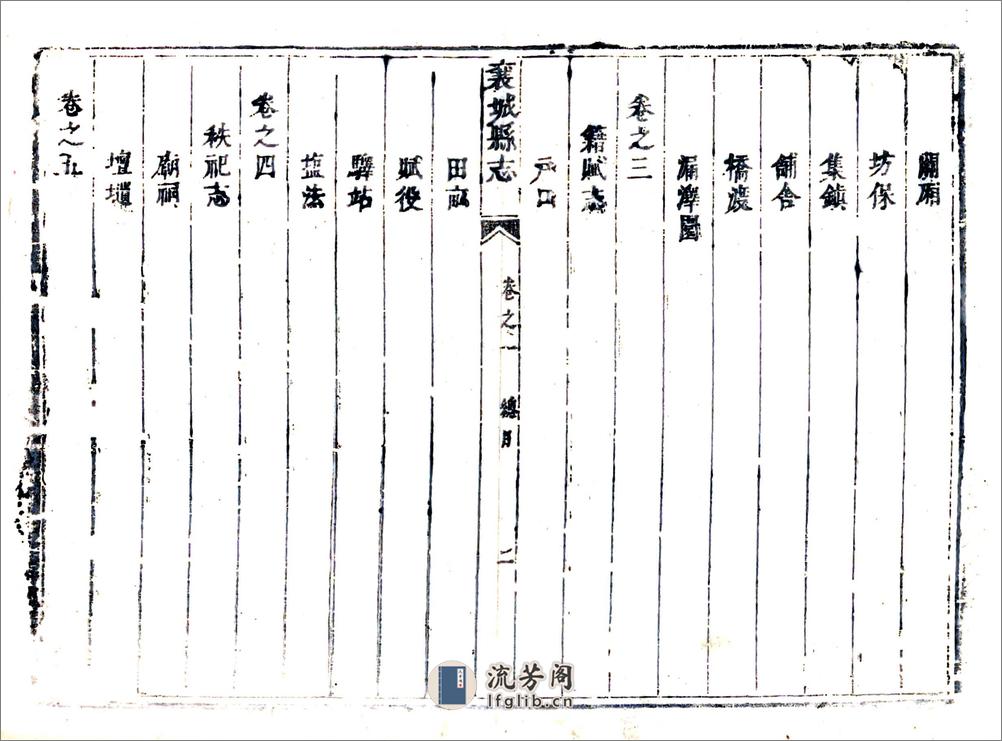 關廂
坊保
集鎮
鋪舍
橋渡
漏澤園
卷之三
籍賦志
戶口
襄城縣志 卷之一 總目 二
田畝
賦役
驛站
盐法
卷之四
秩祀志
廟祠
壇壝
卷之五
流芳阁
lfglib.cn